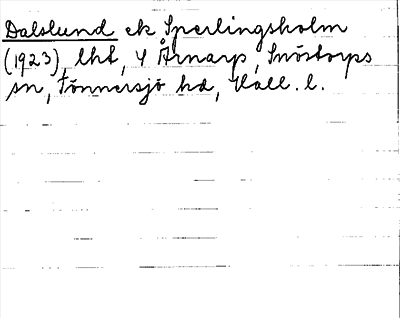 Dalslund ek Sperlingsholm
(1923), lht, 4 Årnarp, Snöstorps
sn, Tönnersjö hd, Hall. l.